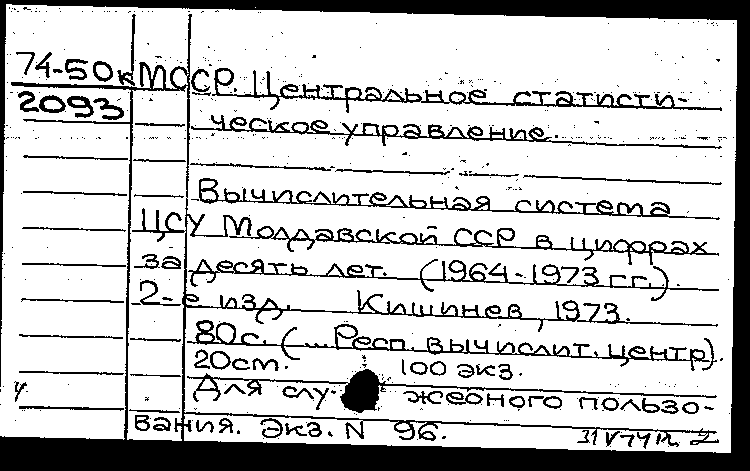 74-50к МССР. Центральное статисти-
2093
ческое управление.
Вычислительная система
ЦСУ Молдавской ССР в цифрах
за десять лет. (1964-1973 гг.).
2-е изд. Кишинев, 1973.
80с. (...Респ. вычислит. центр).
20см. 100 экз.
Для служебного пользо-
вания. Экз. N 96.